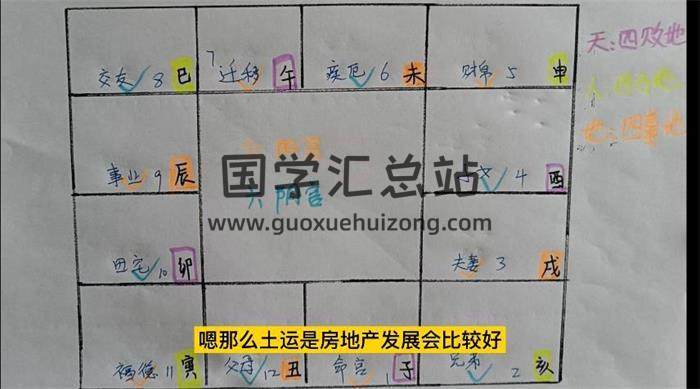 交友 8 巳
7 迁移 午
疾厄 6 未
财帛 5 申
天:四败地
地:四事地
事业 9 辰
4 酉
国学汇总站
六阴宫
www.guoxuehuizong.com
田宅 10 卯
夫妻 3 戌
嗯那么土运是房地产发展会比较好
福德 11 寅
父母 12 丑
命宫 1 子
兄弟 2 亥